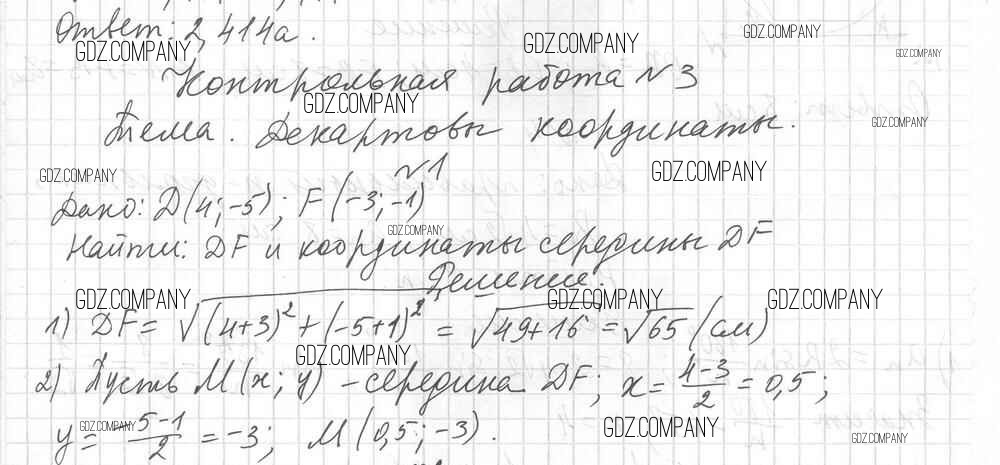 Ответ: 2,414a.
GDZ.COMPANY GDZ.COMPANY GDZ.COMPANY GDZ.COMPANY
Контрольная работа №3
GDZ.COMPANY
Тема. Декартовы координаты.
GDZ.COMPANY
№1
GDZ.COMPANY GDZ.COMPANY
Дано: D(4;-5); F(-3;-1)
GDZ.COMPANY
Найти: DF и координаты середины DF
Решение:
GDZ.COMPANY GDZ.COMPANY GDZ.COMPANY
1) DF = √((4+3)²+(-5+1)²) = √(49+16) = √65 (см)
GDZ.COMPANY
2) Пусть M(x; y) – середина DF; x = (4-3)/2 = 0,5;
GDZ.COMPANY GDZ.COMPANY GDZ.COMPANY
y = (-5-1)/2 = -3; M(0,5; -3).